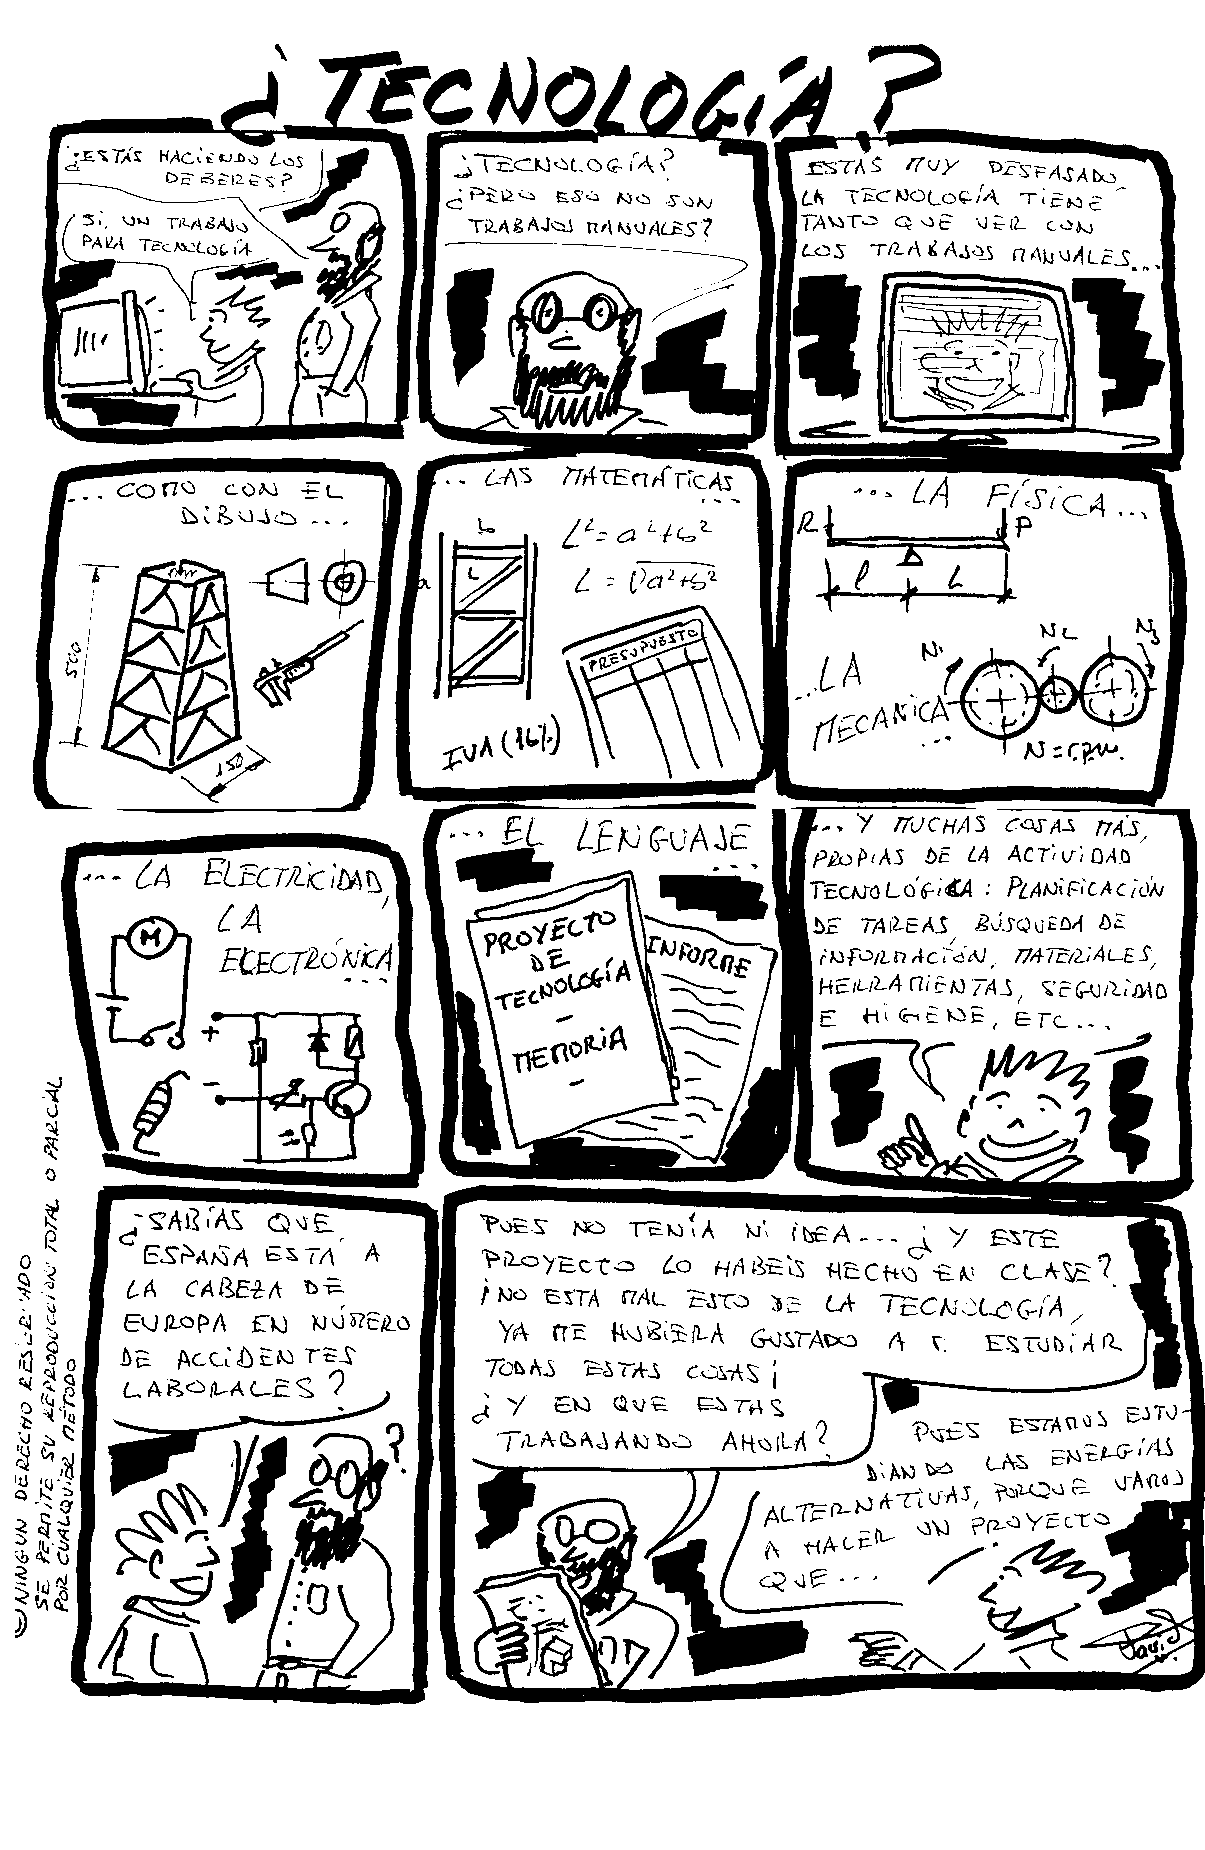 ¿TECNOLOGÍA?
¿ESTÁS HACIENDO LOS
DEBERES?
SI, UN TRABAJO
PARA TECNOLOGÍA
¿TECNOLOGÍA?
¿PERO ESO NO SON
TRABAJOS MANUALES?
ESTAS MUY DESFASADO,
LA TECNOLOGÍA TIENE
TANTO QUE VER CON
LOS TRABAJOS MANUALES...
... COMO CON EL
DIBUJO...
500
150
... LAS MATEMÁTICAS
...
b
a
L
L²=a²+b²
L=√a²+b²
PRESUPUESTO
IVA (16%)
... LA FÍSICA...
R
P
l
L
...LA
MECANICA
...
N1
N2
N3
N=r.p.m.
... LA ELECTRICIDAD,
LA
ELECTRÓNICA
...
M
+
-
... EL LENGUAJE
...
PROYECTO
DE
TECNOLOGÍA
-
MEMORIA
-
INFORME
... Y MUCHAS COSAS MÁS,
PROPIAS DE LA ACTIVIDAD
TECNOLÓGICA: PLANIFICACIÓN
DE TAREAS, BÚSQUEDA DE
INFORMACIÓN, MATERIALES,
HERRAMIENTAS, SEGURIDAD
E HIGIENE, ETC...
¿SABÍAS QUE
ESPAÑA ESTÁ A
LA CABEZA DE
EUROPA EN NÚMERO
DE ACCIDENTES
LABORALES?
?
PUES NO TENÍA NI IDEA... ¿Y ESTE
PROYECTO LO HABEIS HECHO EN CLASE?
¡NO ESTA MAL ESTO DE LA TECNOLOGÍA,
YA ME HUBIERA GUSTADO A MI ESTUDIAR
TODAS ESTAS COSAS¡
¿Y EN QUE ESTAS
TRABAJANDO AHORA?
PUES ESTAMOS ESTU-
DIANDO LAS ENERGÍAS
ALTERNATIVAS, PORQUE VAMOS
A HACER UN PROYECTO
QUE...
David
©NINGUN DERECHO RESERVADO
SE PERMITE SU REPRODUCCION TOTAL O PARCIAL
POR CUALQUIER METODO